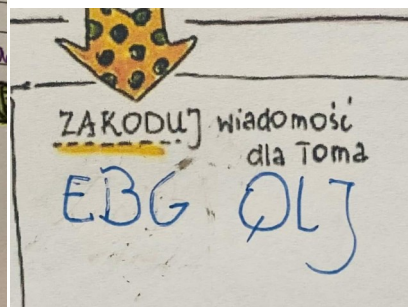 ZAKODUJ wiadomość
dla Toma
EBG QLJ